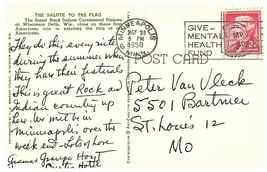 THE SALUTE TO THE FLAG
The Stand Rock Indian Ceremonial Dances
at Wisconsin Dells, Wis., close as these first
Americans run in saluting the flag of all
Americans.
They do this every nite
during the summer when
they has their festivals
This is great Rock and
Indian country up
here. Ws will be in
Minneapolis over the
week end - Lots of love
Gramma Grampa Hoyt
MINNEAPOLIS
MAY 28
5 PM
1958
MINN.
GIVE-
MENTAL
HEALTH
FUND
POST CARD
Peter Van Vleck
5501 Bartmer
St. Louis 12
Mo